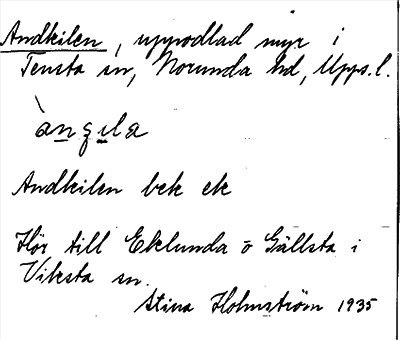 Andkilen, uppodlad myr i
Tensta sn, Norunda hd, Upps.l.
Andkilen bek ek
Hör till Eklunda o Gällsta i
Viksta sn.
Stina Holmström 1935